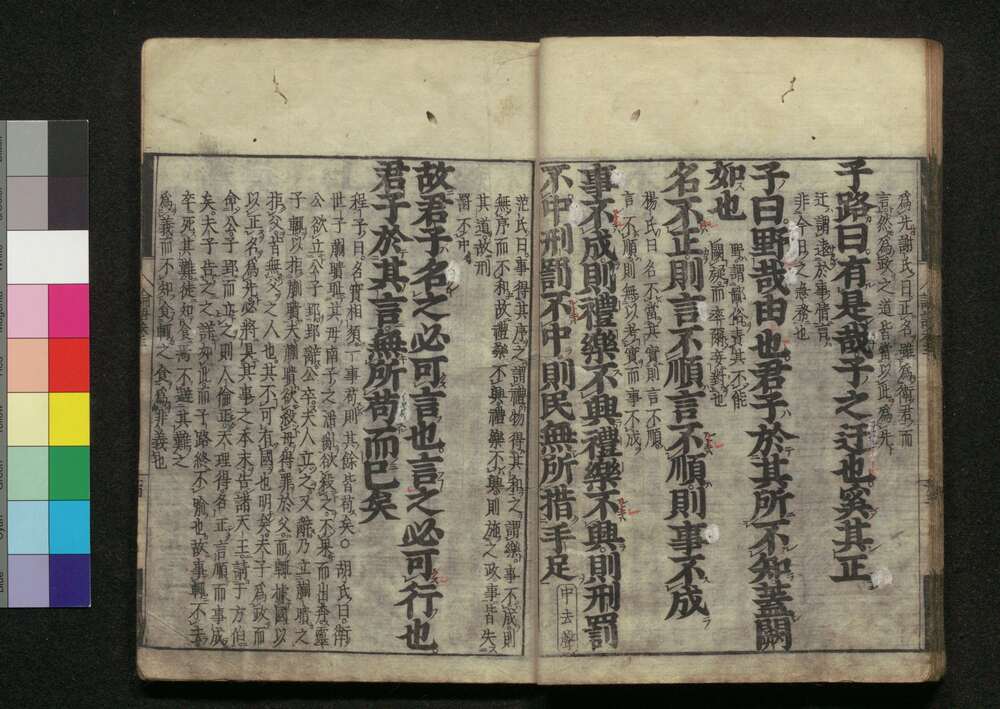 爲先謝氏曰正名雖爲衛君而
言然爲政之道皆當以此爲先
子路曰有是哉子之迂也奚其正
迂謂遠於事情言
非今日之急務也
子曰野哉由也君子於其所不知蓋闕
如也
野謂鄙俗責其不能
闕疑而率爾妄對也
名不正則言不順言不順則事不成
楊氏曰名不當其實則言不順
言不順則無以考實而事不成
事不成則禮樂不興禮樂不興則刑罰
不中刑罰不中則民無所措手足
中去聲
范氏曰事得其序之謂禮物得其和之謂樂事不成則
無序而不和故禮樂不興禮樂不興則施之政事皆失
其道故刑
罰不中
故君子名之必可言也言之必可行也
君子於其言無所苟而已矣
程子曰名實相須一事苟則其餘皆苟矣○胡氏曰衛
世子蒯聵恥其母南子之淫亂欲殺之不果而出奔靈
公欲立公子郢郢辭公卒夫人立之又辭乃立蒯聵之
子輒以拒蒯聵夫蒯聵欲殺母得罪於父而輒據國以
拒父皆無父之人也其不可有國也明矣夫子爲政而
以正名爲先必將具其事之本末告諸天王請于方伯
命公子郢而立之則人倫正天理得名正言順而事成
矣夫子告之之詳如此而子路終不喩也故事輒不去
卒死其難徒知食焉不避其難之
爲義而不知食輒之食爲非義也